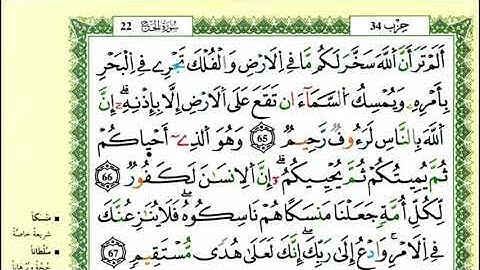 سُورَةُ الحَجّ 22
حِزْب 34
أَلَمْ تَرَ أَنَّ اَ۬للَّهَ سَخَّرَ لَكُم مَّا فِے اِ۬لَارْضِ وَالْفُلْكَ تَجْرِے فِے اِ۬لْبَحْرِ
بِأَمْرِهِۦ وَيُمْسِكُ اُ۬لسَّمَآءَ ان تَقَعَ عَلَى اَ۬لَارْضِ إِلَّا بِإِذْنِهِۦٓ إِنَّ
اَ۬للَّهَ بِالنَّاسِ لَرَءُوفٌ رَّحِيمٌ 65 وَهُوَ اَ۬لذِےٓ أَحْيَاكُمْ
ثُمَّ يُمِيتُكُمْ ثُمَّ يُحْيِيكُمُۥٓ إِنَّ اَ۬لِانسَٰنَ لَكَفُورٌ 66
لِكُلِّ أُمَّةٖ جَعَلْنَا مَنسَكاً هُمْ نَاسِكُوهُ فَلَا يُنَٰزِعُنَّكَ
فِے اِ۬لَامْرِ وَادْعُ إِلَىٰ رَبِّكَ إِنَّكَ لَعَلَىٰ هُدىٗ مُّسْتَقِيمٖ 67
مَنسَكاً
شريعة خاصّة
سُلْطَاناً
حُجّة وبُرهاناً